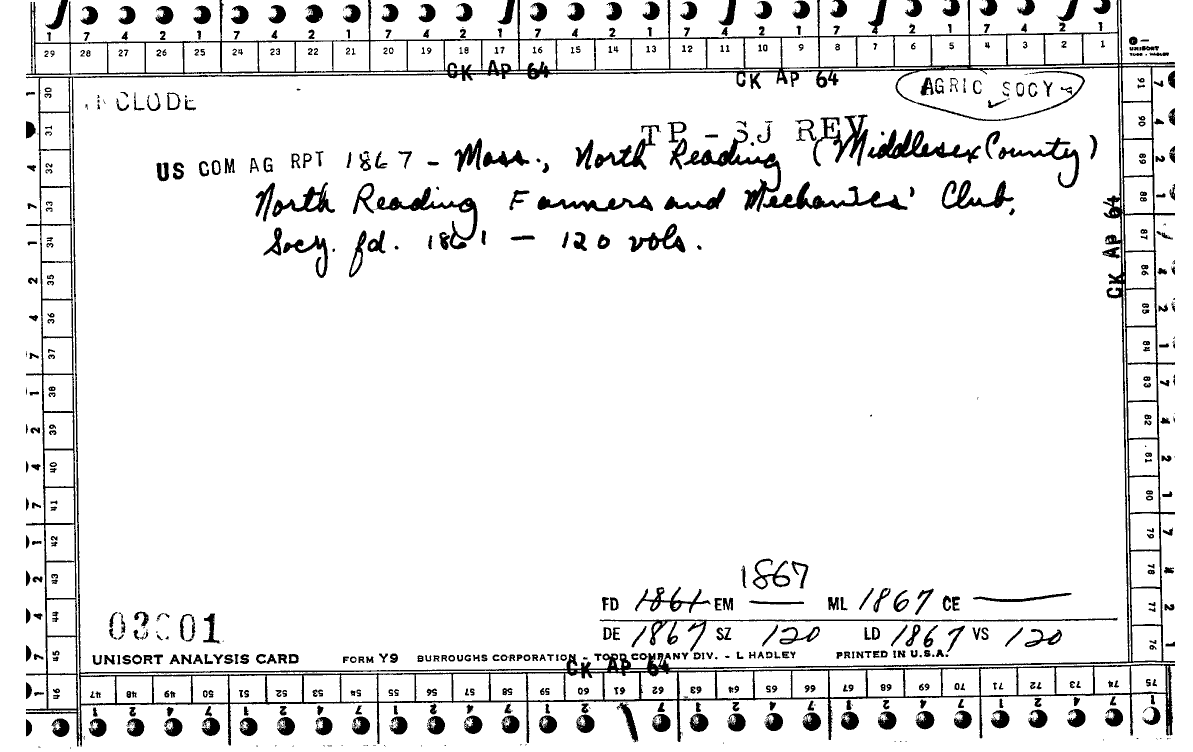 1 7 4 2 1 7 4 2 1 7 4 2 1 7 4 2 1 7 4 2 1 7 4 2 1 7 4 2 1
29 28 27 26 25 24 23 22 21 20 19 18 17 16 15 14 13 12 11 10 9 8 7 6 5 4 3 2 1
UNISORT
TODD - HADLEY
CK AP 64 CK AP 64
INCLUDE
AGRIC SOCY
TP - SJ REV
US COM AG RPT 1867 - Mass., North Reading (Middlesex County)
North Reading Farmers and Mechanics' Club.
Socy. fd. 1861 — 120 vols.
CK AP 64
30 31 32 33 34 35 36 37 38 39 40 41 42 43 44 45 46
91 90 89 88 87 86 85 84 83 82 81 80 79 78 77 76
1867
FD 1861 EM — ML 1867 CE —
03601
DE 1867 SZ 120 LD 1867 VS 120
UNISORT ANALYSIS CARD FORM Y9 BURROUGHS CORPORATION - TODD COMPANY DIV. - L HADLEY PRINTED IN U.S.A.
CK AP 64
47 48 49 50 51 52 53 54 55 56 57 58 59 60 61 62 63 64 65 66 67 68 69 70 71 72 73 74 75